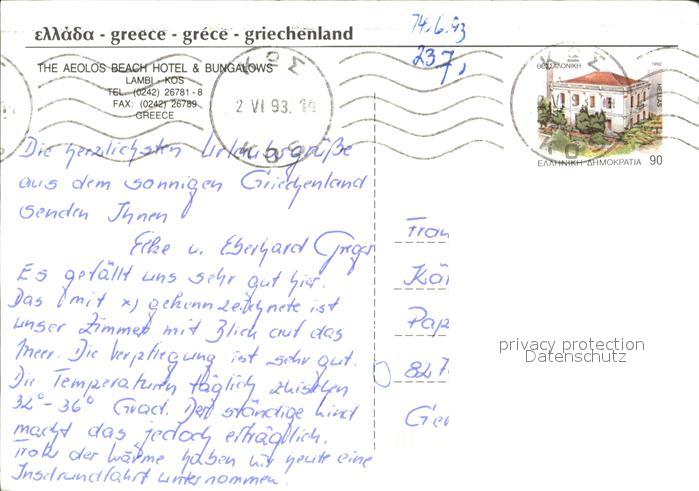 ελλάδα - greece - gréce - griechenland
74.6.93
237,
THE AEOLOS BEACH HOTEL & BUNGALOWS
LAMBI - KOS
TEL. (0242) 26781 - 8
FAX: (0242) 26789
GREECE
2 VI 93.
ΚΩΣ
ΘΕΣΣΑΛΟΝΙΚΗ
1992
HELLAS
ΕΛΛΗΝΙΚΗ ΔΗΜΟΚΡΑΤΙΑ 90
Die herzlichsten Urlaubsgrüße
aus dem sonnigen Griechenland
senden Ihnen
Elke u. Eberhard
Es gefällt uns sehr gut hier.
Das mit x) gekennzeichnete ist
unser Zimmer mit Blick auf das
Meer. Die Verpflegung ist sehr gut.
Die Temperaturen täglich zwischen
32° - 36° Grad. Der ständige Wind
macht das jedoch erträglich.
Trotz der Wärme haben wir heute eine
Inselrundfahrt unternommen.
Fran
Kä
Pap
827
Ger
privacy protection
Datenschutz